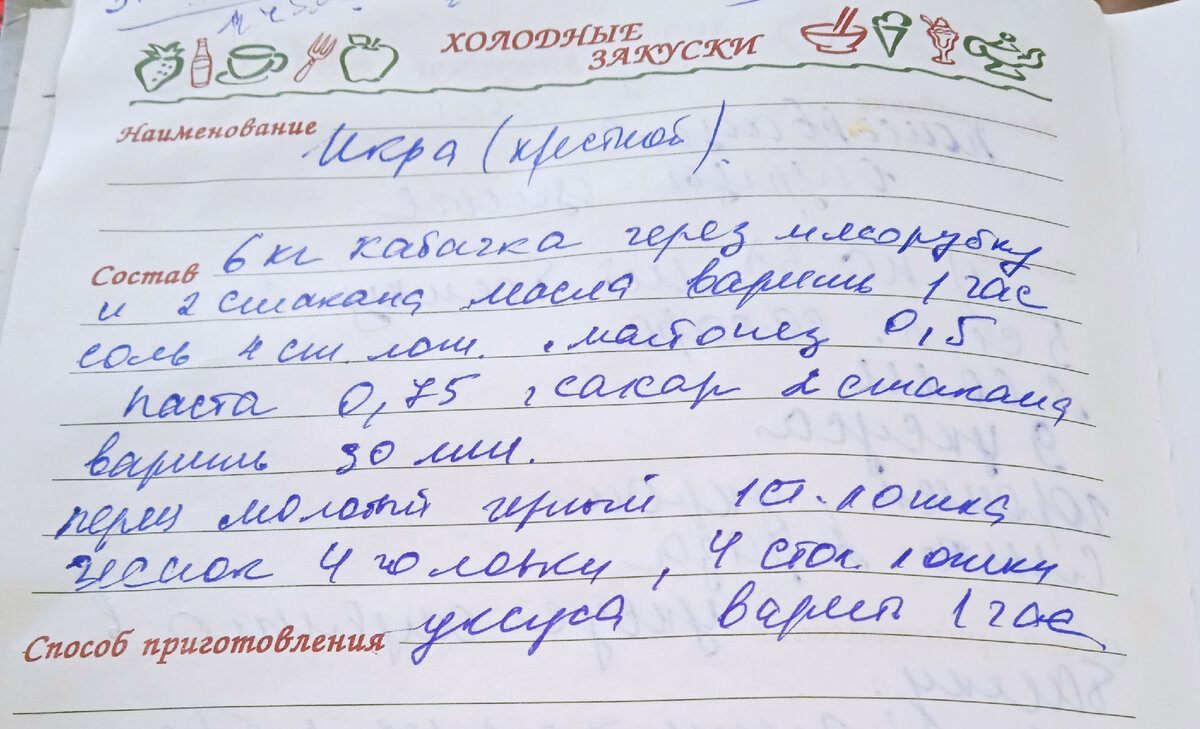 ХОЛОДНЫЕ
ЗАКУСКИ
Наименование Икра (крестной)
Состав 6 кг кабачка через мясорубку
и 2 стакана масла варишь 1 час
соль 4 ст. лож. майонез 0,5
паста 0,75, сахар 2 стакана
варишь 30 мин.
перец молотый черный 1 ст. ложка
чеснок 4 головки, 4 стол. ложки
Способ приготовления уксуса варить 1 час